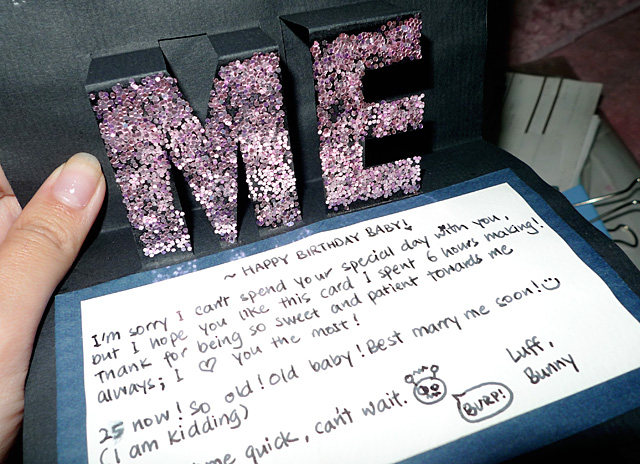 ME
~ HAPPY BIRTHDAY BABY!
I'm sorry I can't spend your special day with you,
but I hope you like this card I spent 6 hours making!
Thank for being so sweet and patient towards me
always; I ♡ you the most!
25 now! So old! Old baby! Best marry me soon! ☺
(I am kidding)
quick, can't wait.
BURP!
Luff,
Bunny